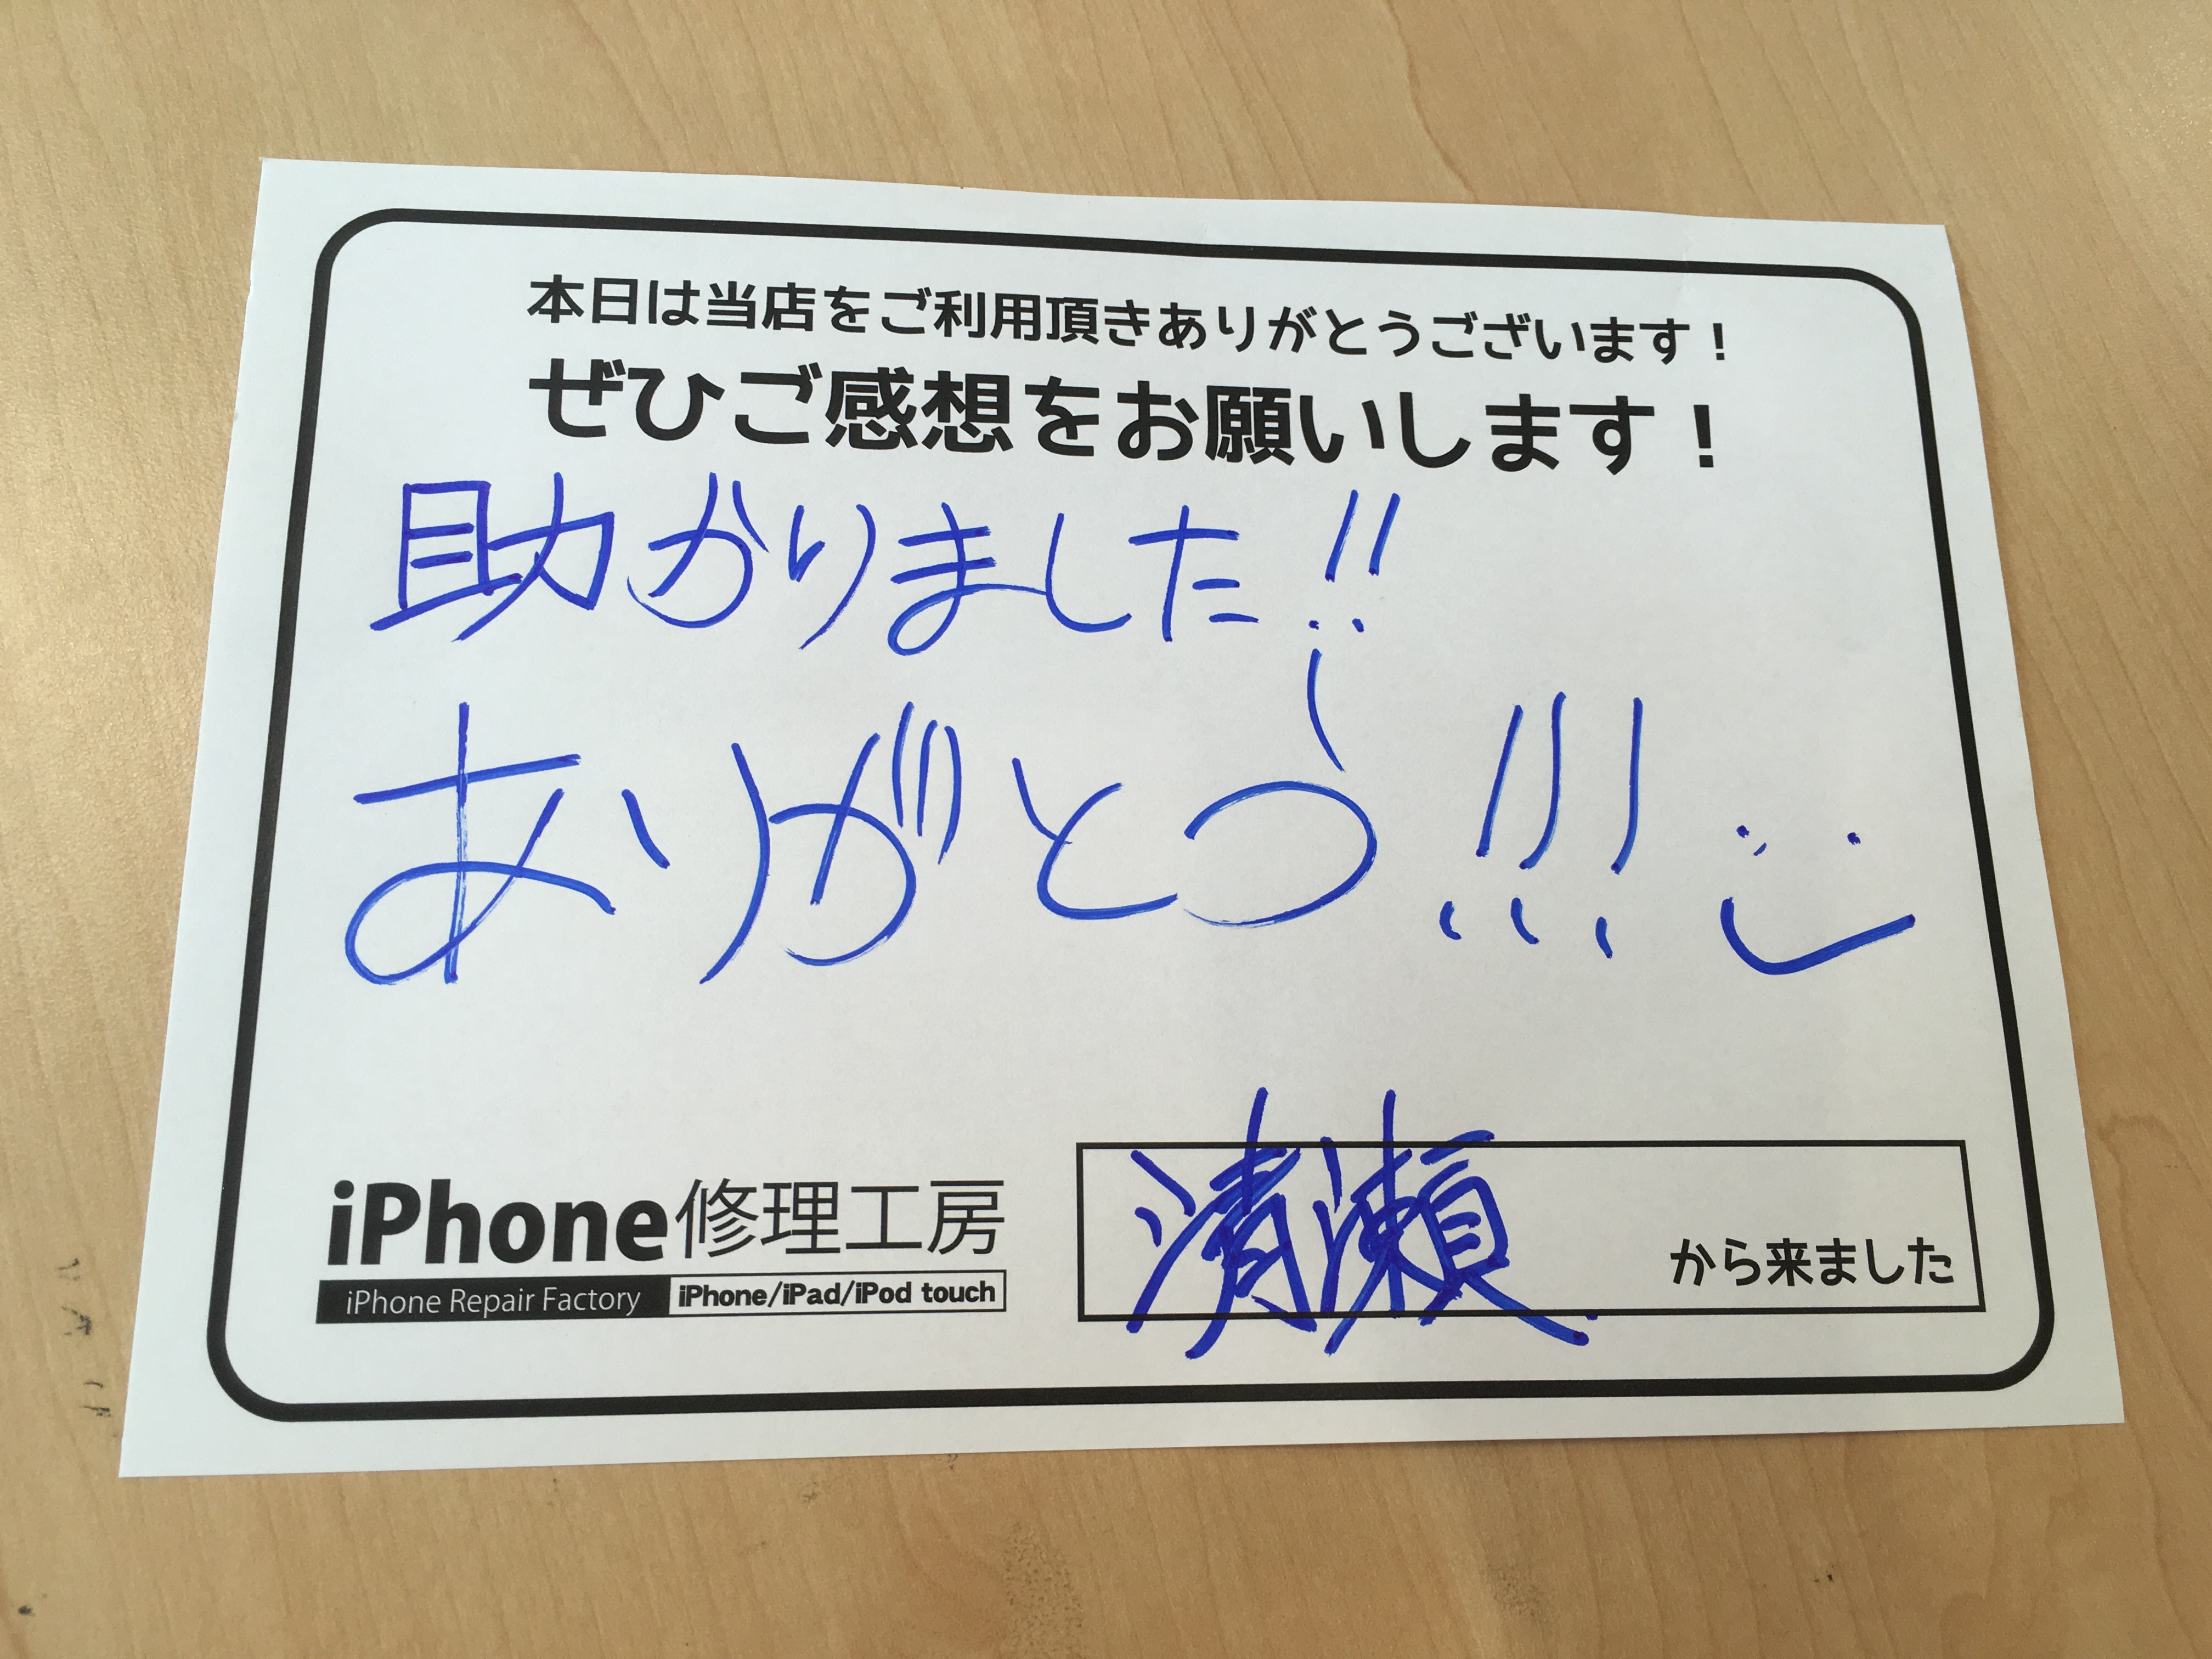 本日は当店をご利用頂きありがとうございます！
ぜひご感想をお願いします！
助かりました!!
ありがとう!!!
清瀬
から来ました
iPhone修理工房
iPhone Repair Factory
iPhone/iPad/iPod touch